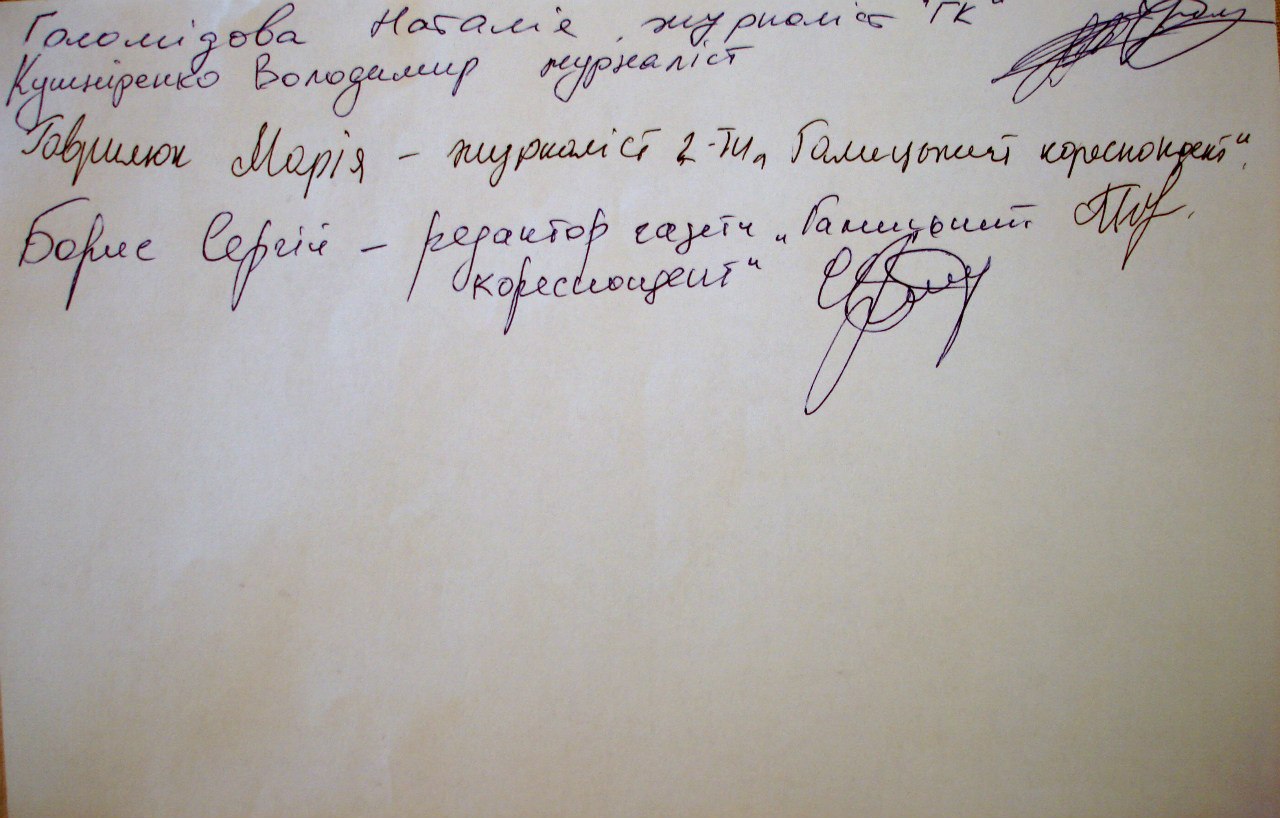 Голомідова Наталіє, журналіст "ГК"
Кушніренко Володимир журналіст
Гаврилюк Марія – журналіст г-ти „Галицький кореспондент“.
Борис Сергій – редактор газети „Галицький
кореспондент“